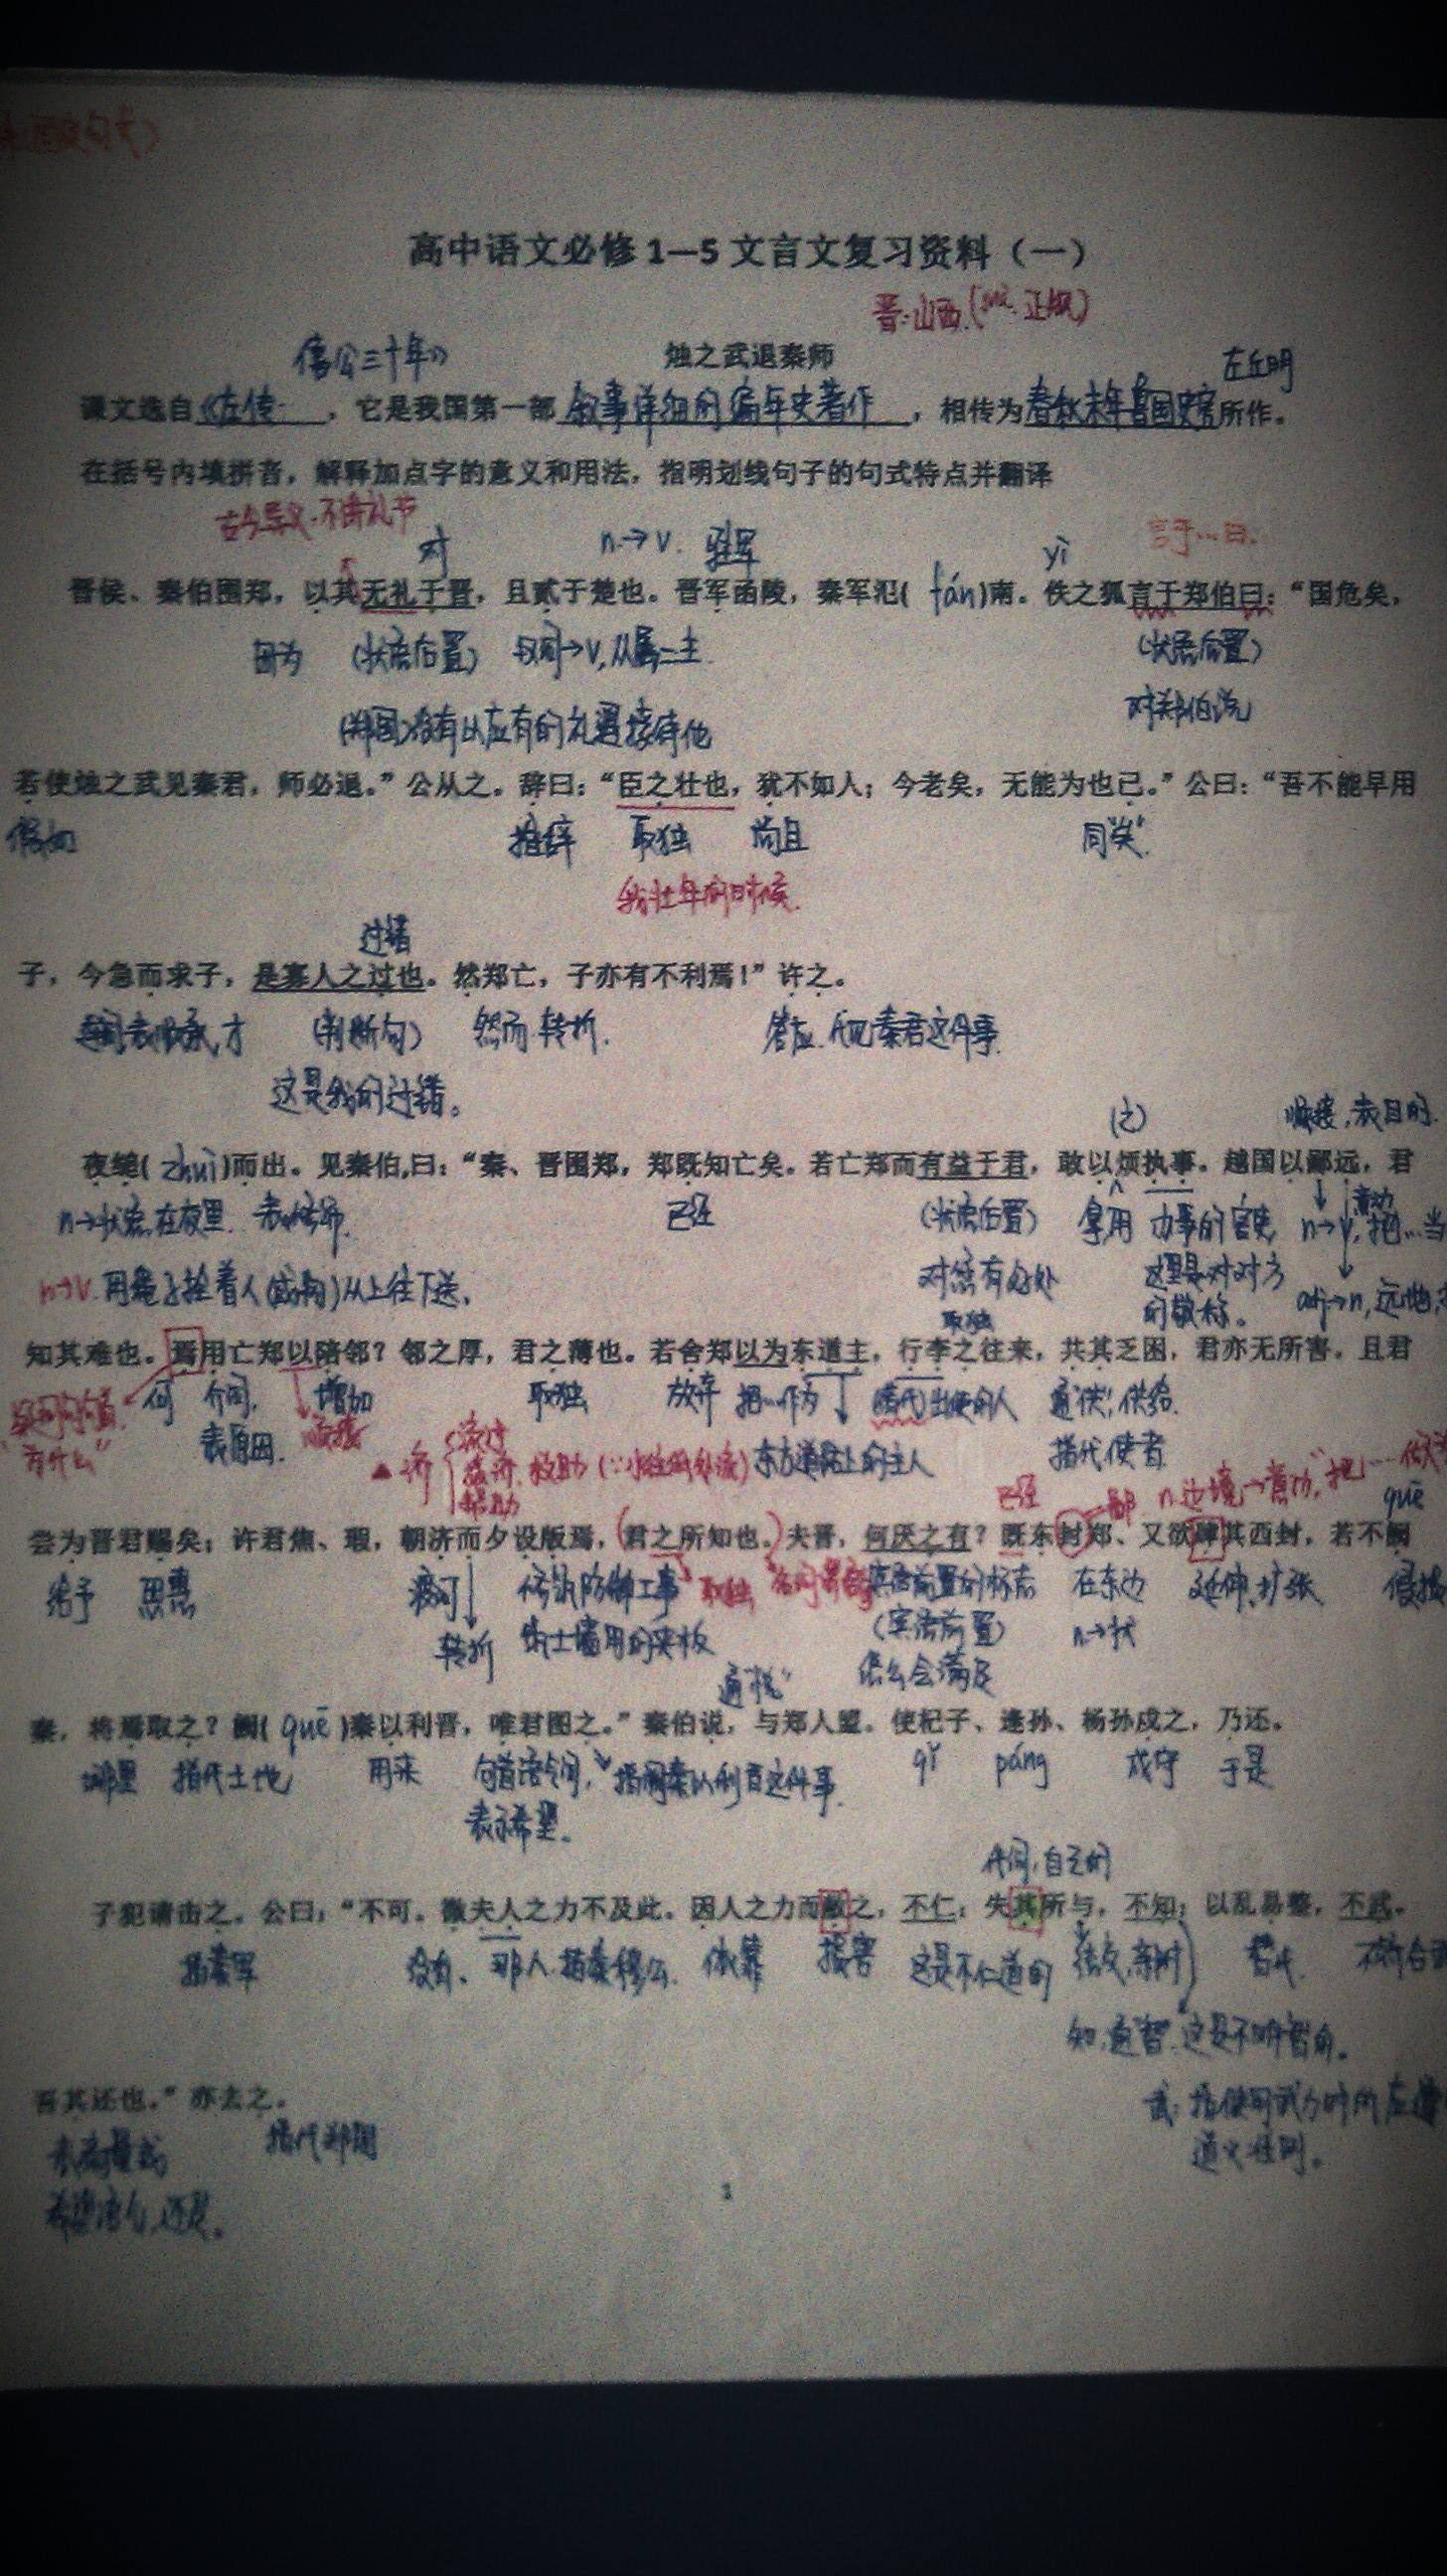 高中语文必修1—5文言文复习资料（一）
晋:山西.
僖公三十年》 烛之武退秦师 左丘明
课文选自《左传 ，它是我国第一部 叙事详细的编年史著作 ，相传为春秋末年鲁国史官所作。
在括号内填拼音，解释加点字的意义和用法，指明划线句子的句式特点并翻译
对 n.→v. 驻军 yì 言于…曰.
晋侯、秦伯围郑，以其无礼于晋，且贰于楚也。晋军函陵，秦军氾( fán)南。佚之狐言于郑伯曰：“国危矣，
因为 (状语后置) →v,从属二主. (状语后置)
(郑国)没有以应有的礼遇接待他 对郑伯说
若使烛之武见秦君，师必退。”公从之。辞曰：“臣之壮也，犹不如人；今老矣，无能为也已。”公曰：“吾不能早用
假如 推辞 取独 尚且 同“矣”.
我壮年的时候.
过错
子，今急而求子，是寡人之过也。然郑亡，子亦有不利焉！”许之。
才 (判断句) 然而.转折. 答应. 秦君这件事.
这是我的过错。
(之) 顺接,表目的.
夜缒( zhuì)而出。见秦伯,曰：“秦、晋围郑，郑既知亡矣。若亡郑而有益于君，敢以烦执事。越国以鄙远，君
n→状语.在夜里. 表修饰. 已经 (状语后置) 拿,用 办事的官吏, n→v,把…当
n→v.用绳子拴着人(或物)从上往下送. 对您有好处 这里是对对方
取独 的敬称。 adj→n,远地,
知其难也。焉用亡郑以陪邻？邻之厚，君之薄也。若舍郑以为东道主，行李之往来，共其乏困，君亦无所害。且君
何 介词, 增加 取独 放弃 把…作为 出使的人 通“供”,供给.
“为什么” 表原因. 顺接 济 渡过 救助 东方道路上的主人 指代使者
已经 鄙 n.边境→意动,“把…… quē
尝为晋君赐矣；许君焦、瑕，朝济而夕设版焉，(君之所知也。)夫晋，何厌之有？既东封郑、又欲肆其西封，若不阙
给予 恩惠 渡河 防御工事 取独 宾语前置的标志 在东边 延伸,扩张
转折 筑土墙用的夹板 (宾语前置) n→状
通“悦” 怎么会满足
秦，将焉取之？阙( quē )秦以利晋，唯君图之。”秦伯说，与郑人盟。使杞子、逢孙、杨孙戍之，乃还。
哪里 指代土地 用来 句首语气词, 指阙秦以利晋这件事. qǐ páng 戍守 于是
表示希望。
代词,自己的
子犯请击之。公曰：“不可。微夫人之力不及此。因人之力而敝之，不仁；失其所与，不知；以乱易整，不武。
指秦军 没有、 那人.指秦穆公. 依靠 损害 这是不仁道的 结交,亲附 替代.
知:通“智”.这是不明智的。
吾其还也。”亦去之。 武:指使用武力时所应遵
指代郑国 道义准则。
1